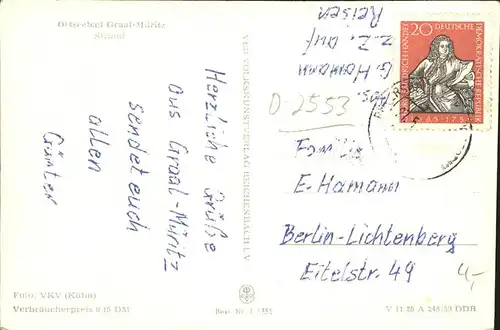 Ostseebad Graal-Müritz
Strand
Herzliche Grüße
aus Graal-Müritz
sendet euch
allen
Günter
Foto: VKV (Kühn)
Verbraucherpreis 0,15 DM
VEB VOLKSKUNSTVERLAG REICHENBACH i. V.
Best.-Nr.
Abs.
G. Hamann
z. Z. auf
Reisen
D-2553
20 DEUTSCHE
DEMOKRATISCHE REPUBLIK
GEORG FRIEDRICH HÄNDEL
1685-1759
Familie
E. Hamann
Berlin-Lichtenberg
Eitelstr. 49
4,-
V 11 28 A 248/59 DDR